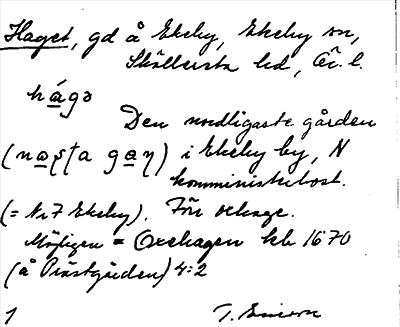 Haget, gd å Ekeby, Ekeby sn,
Skyllersta hd, Ör. l.
hágə
Den nordligaste gården
(nɷʂʈa gaɳ) i Ekeby by, N
komministerbost.
(= Nr 7 Ekeby). För delage.
Möjligen = Oxehagen kb 1670
(å Prästgården) 4:2
1 T. Ericsson